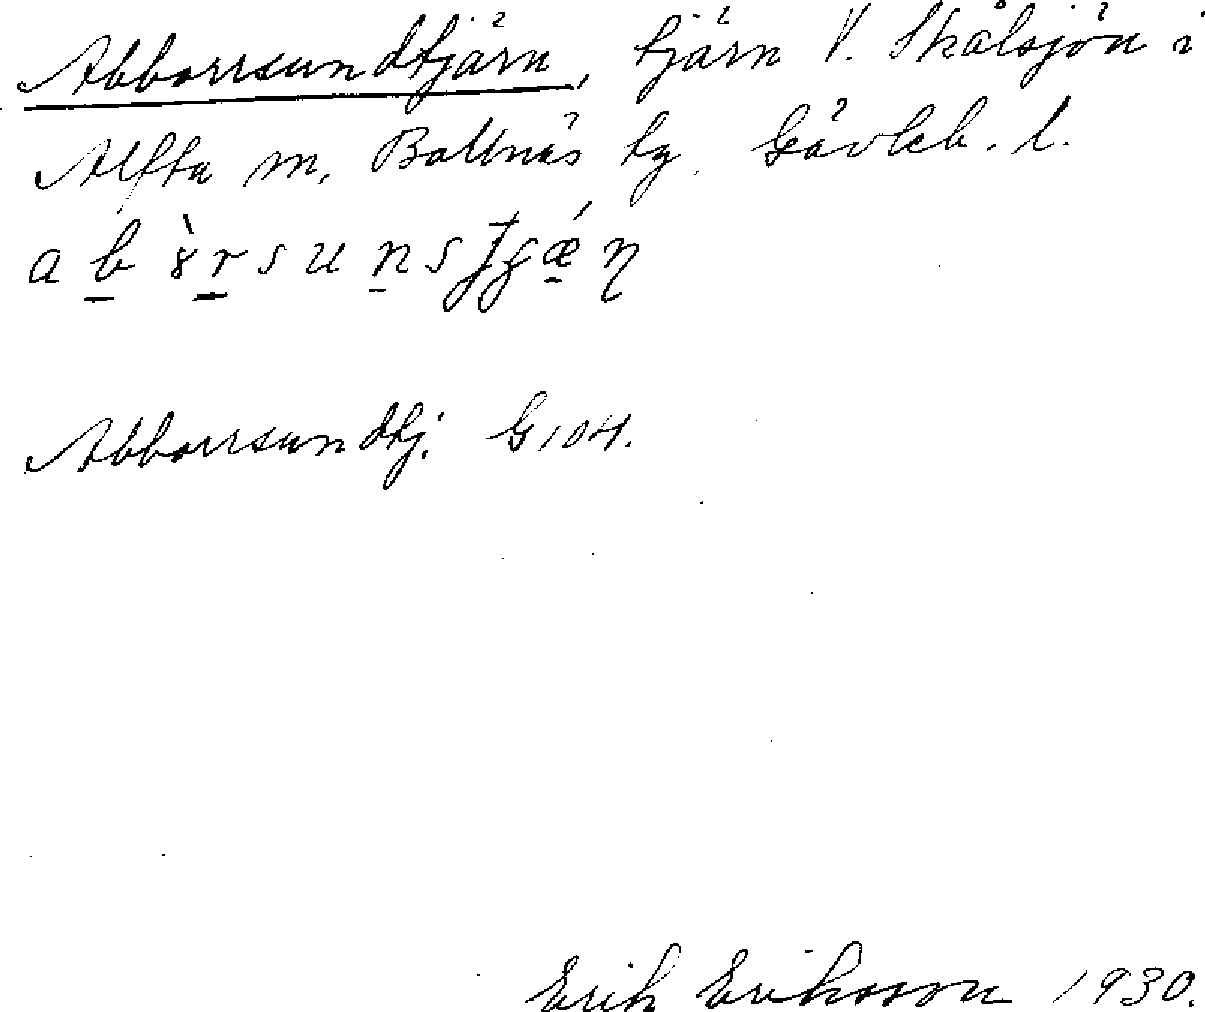 Abborrsundtjärn, tjärn V. Skålsjön i
Alfta sn, Bollnäs tg. Gävleb. l.
Abborrsundtj. G 104.
Erik Eriksson 1930.